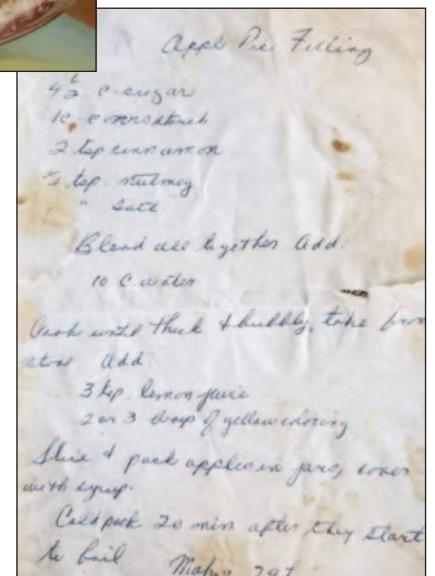 Appl Pie Filling
4 1/2 c-sugar
1 c cornstarch
2 tsp cinnamon
tsp. nutmeg
1 " salt
Blend all together Add:
10 C water
Cook until thick & bubbly, take from
stove Add
3 tsp. lemon juice
2 or 3 drops of yellow coloring
Slice & pack apples in jars, cover
with syrup.
Cold pack 20 min after they start
to boil Makes 7 qt